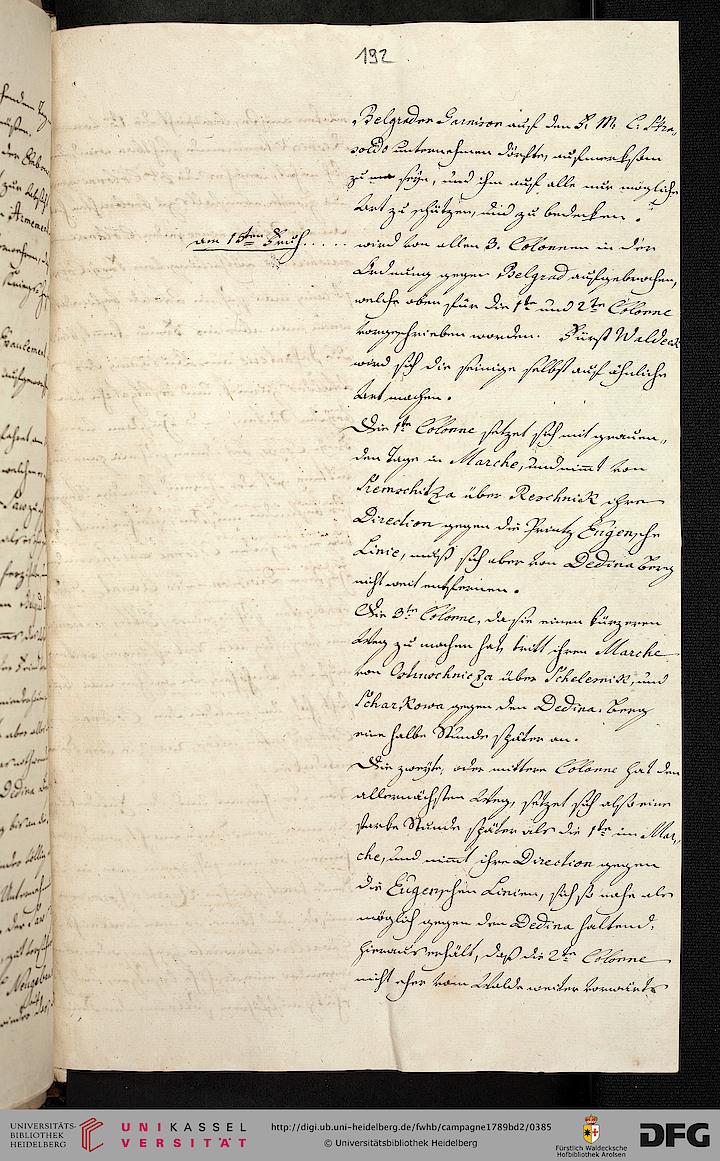 192
Belgrader Garnison auf den F. M. L. Stra„
soldo unternehmen dörfte, aufmerksam
zu seyn, und ihn auf alle nur mögliche
Art zu schützen, und zu bedecken.
am 15ten Fruh..... wird von allen 3. Colonnen in der
Ordnung gegen Belgrad aufgebrochen,
welche oben für die 1te und 2te Colonne
vorgeschrieben worden. Fürst Waldeck
wird sich die seinige selbst auf ähnliche
Art machen.
Die 1te Colonne setzet sich mit grauen„
den Tage in Marche, und nimt von
über Reschnick ihre
Direction gegen die Printz Eugensche
Linie, muß sich aber von Dedina Berg
nicht weit entfernen.
Die 3te Colonne, da sie einen kürzeren
Weg zu machen hat, tritt ihren Marche
von über Schelesnick, und
Scharkowa gegen den Dedina-Berg
eine halbe Stunde später an.
Die zweyte, oder mittere Colonne hat den
allernächsten Weg, setzet sich also eine
starke Stunde später als die 1te im Mar„
che, und nimt ihre Direction gegen
die Eugenschen Linien, sich so nahe als
möglich gegen den Dedina haltend,
hieraus erhält, daß die 2te Colonne
nicht eher vom Walde weiter vorwärts
UNIVERSITÄTS-
BIBLIOTHEK
HEIDELBERG
UNIKASSEL
VERSITÄT
http://digi.ub.uni-heidelberg.de/fwhb/campagne1789bd2/0385
© Universitätsbibliothek Heidelberg
Fürstlich Waldecksche
Hofbibliothek Arolsen
DFG